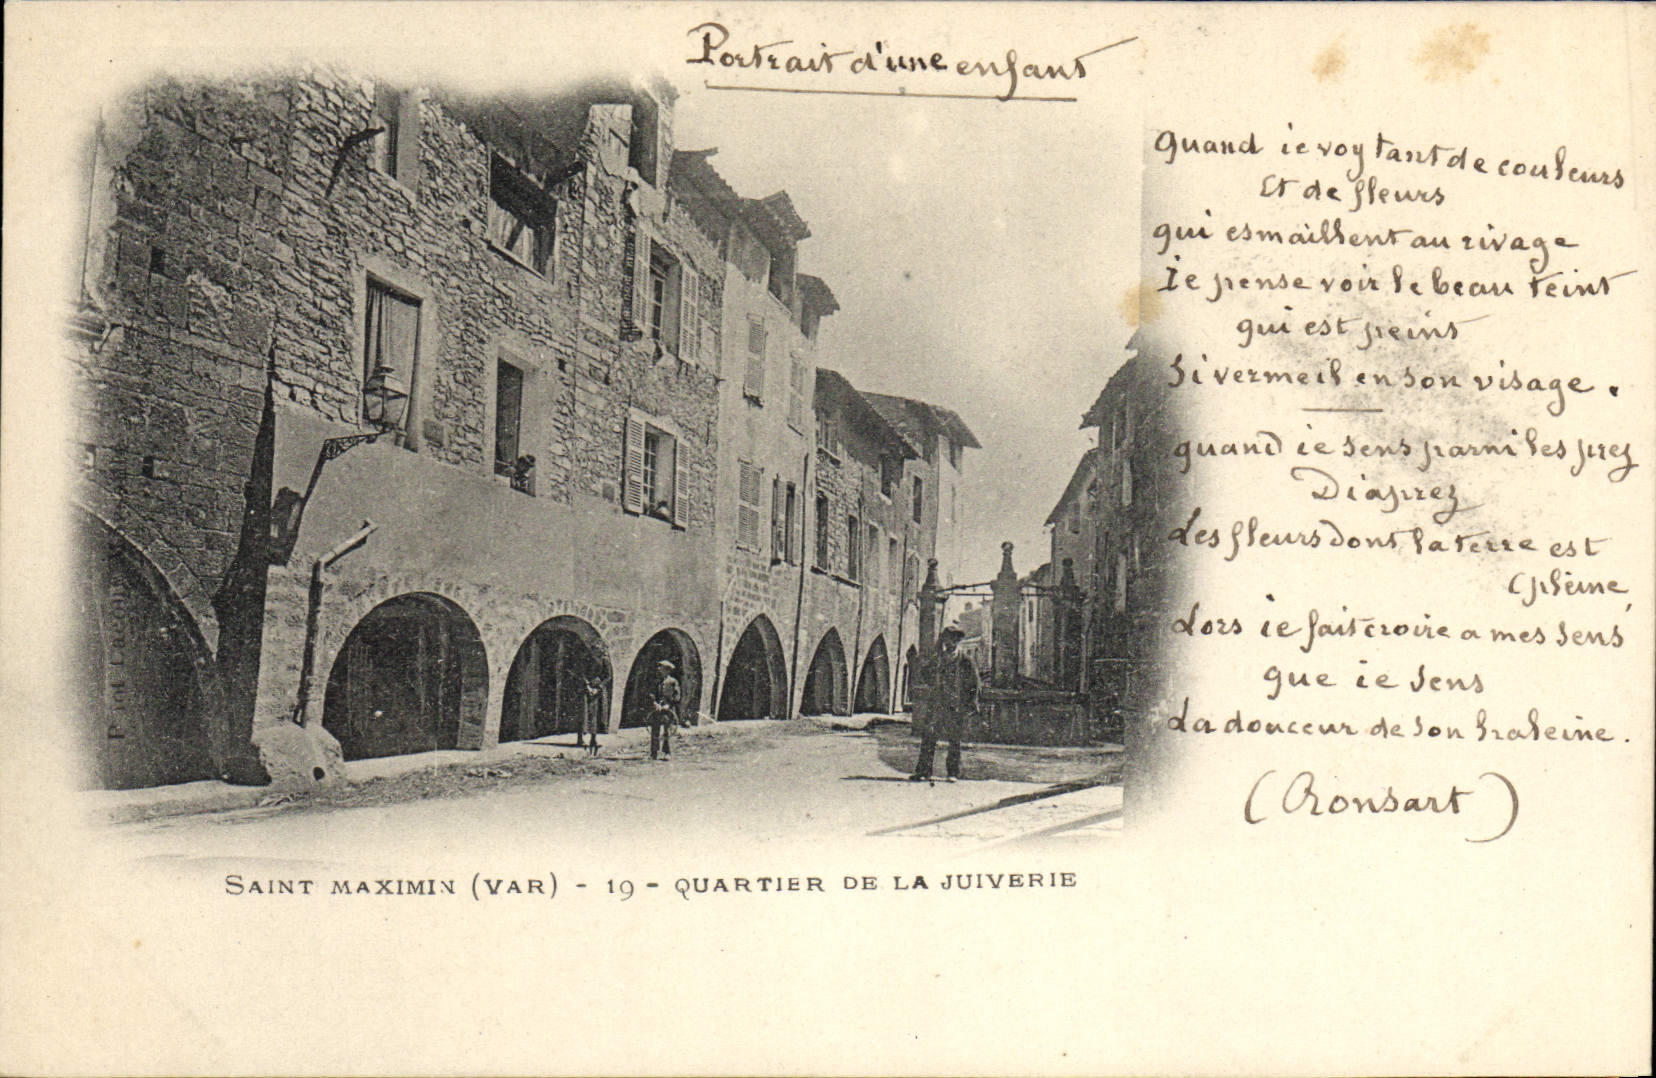 Portrait d'une enfant
Quand ie voy tant de couleurs
Et de fleurs
qui esmaillent au rivage
Ie pense voir le beau teint
qui est peint
Si vermeil en son visage.
quand ie sens parmi les prez
Diaprez
Les fleurs dont la terre est
(pleine,
Lors ie fait croire a mes sens
que ie sens
La douceur de son haleine.
(Ronsart)
SAINT MAXIMIN (VAR) - 19 - QUARTIER DE LA JUIVERIE